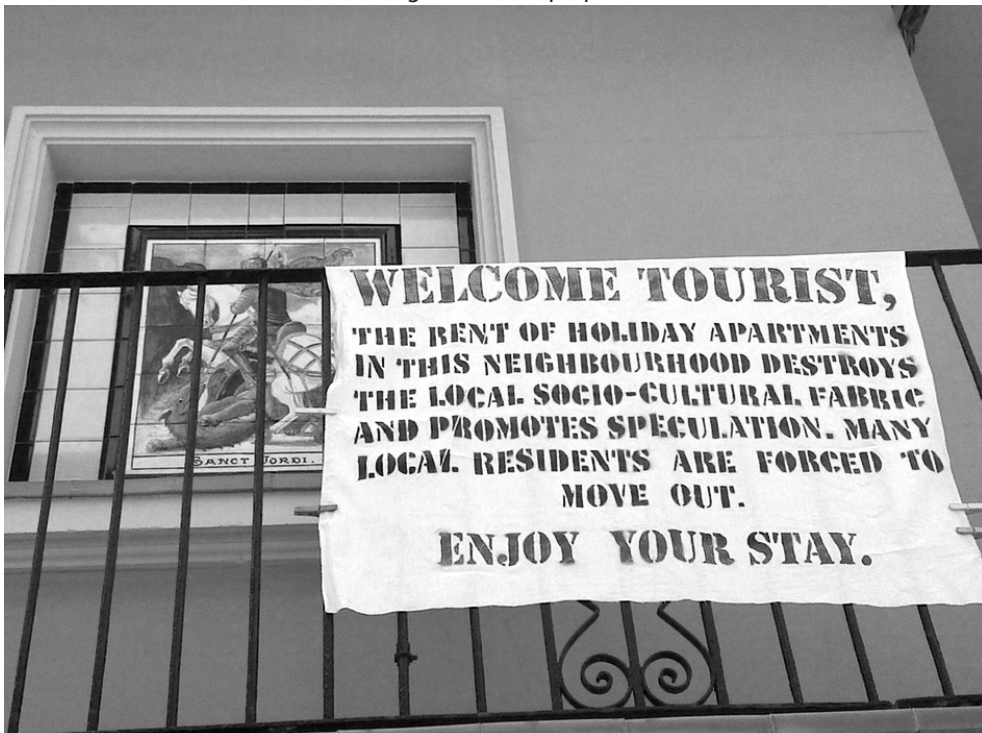 SANCT JORDI.
WELCOME TOURIST,
THE RENT OF HOLIDAY APARTMENTS
IN THIS NEIGHBOURHOOD DESTROYS
THE LOCAL SOCIO-CULTURAL FABRIC
AND PROMOTES SPECULATION. MANY
LOCAL RESIDENTS ARE FORCED TO
MOVE OUT.
ENJOY YOUR STAY.